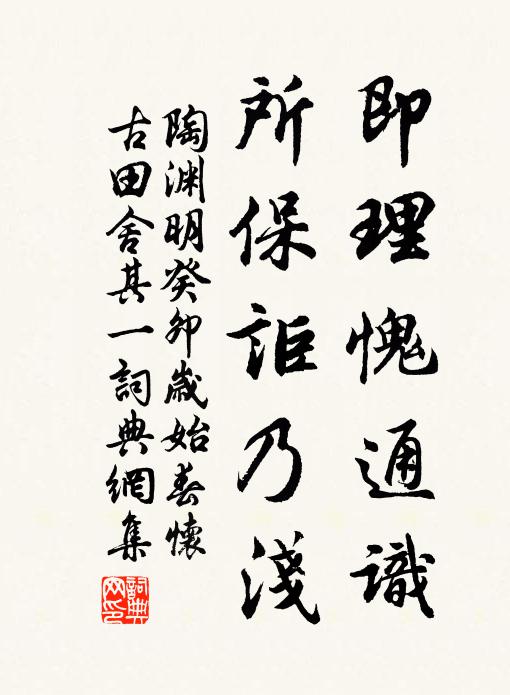 即理愧通識
所保詎乃淺
陶渊明癸卯歲始春懷
古田舍其一詞典網集
詞典網印